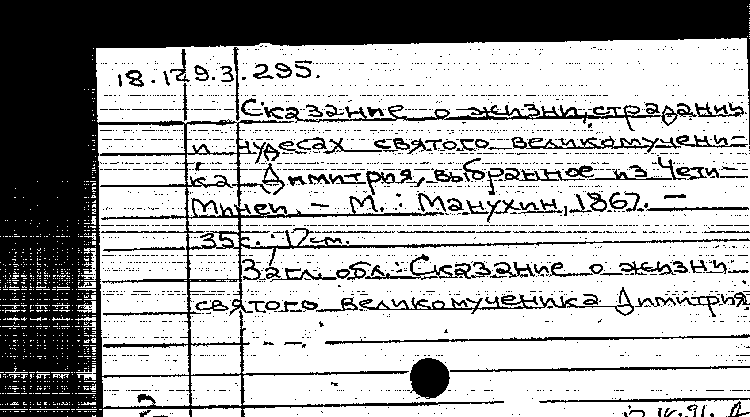 18.129.3.295.
Сказание о жизни, страдании
и чудесах святого великомучени-
ка Димитрия, выбранное из Чети-
Миней. - М.: Манухин, 1867. -
35с.; 17см.
Загл. обл.: Сказание о жизни
святого великомученика Димитрия